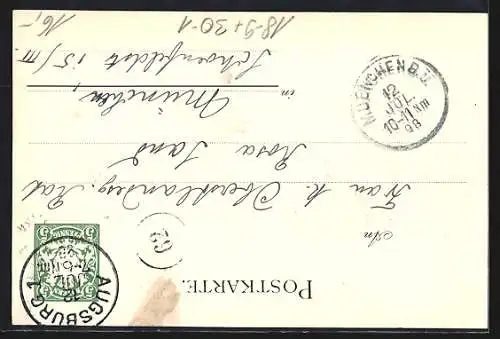 POSTKARTE.
An
Frau k. Oberstlandesg. Rat
Rosa Sand
in München,
Schoenfeldstr 15/III.
62
AUGSBURG 1
12
JUL
MUENCHEN B.Z.
12
JUL.
10-11 Nm
98
5
BAYERN
16,-
18-9+30-1